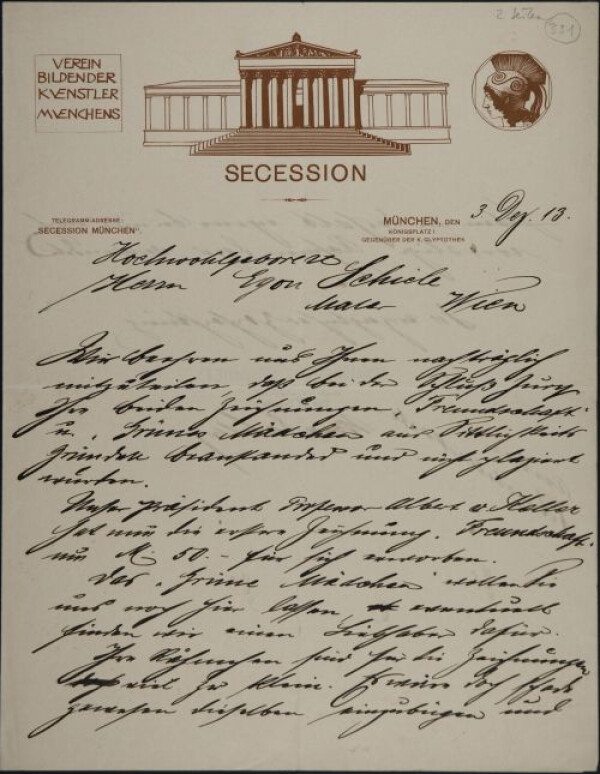 2 Seiten
321
VEREIN
BILDENDER
KVENSTLER
MVENCHENS
SECESSION
TELEGRAMM-ADRESSE:
"SECESSION MÜNCHEN".
MÜNCHEN, DEN 3 Dez. 13.
KÖNIGSPLATZ 1
GEGENÜBER DER K. GLYPTOTHEK
Hochwohlgeboren
Herrn Egon Schiele
Maler Wien
Wir beehren uns Ihnen nachträglich
mitzuteilen, daß bei der Schluß Jury
Ihre beiden Zeichnungen „Freundschaft"
u. „Grünes Mädchen" aus Sittlichkeits
Gründen beanstandet und nicht plaziert
wurden.
Unser Präsident Professor Albert v. Keller
hat nun die erstere Zeichnung „Freundschaft"
um M. 50.- für sich erworben.
Das „Grüne Mädchen" wollen Sie
uns noch hier lassen eventuell
finden wir einen Liebhaber dafür.
Ihre Rähmchen sind für die Zeichnungen
viel zu klein. Es wäre doch schade
gewesen dieselben einzubiegen und